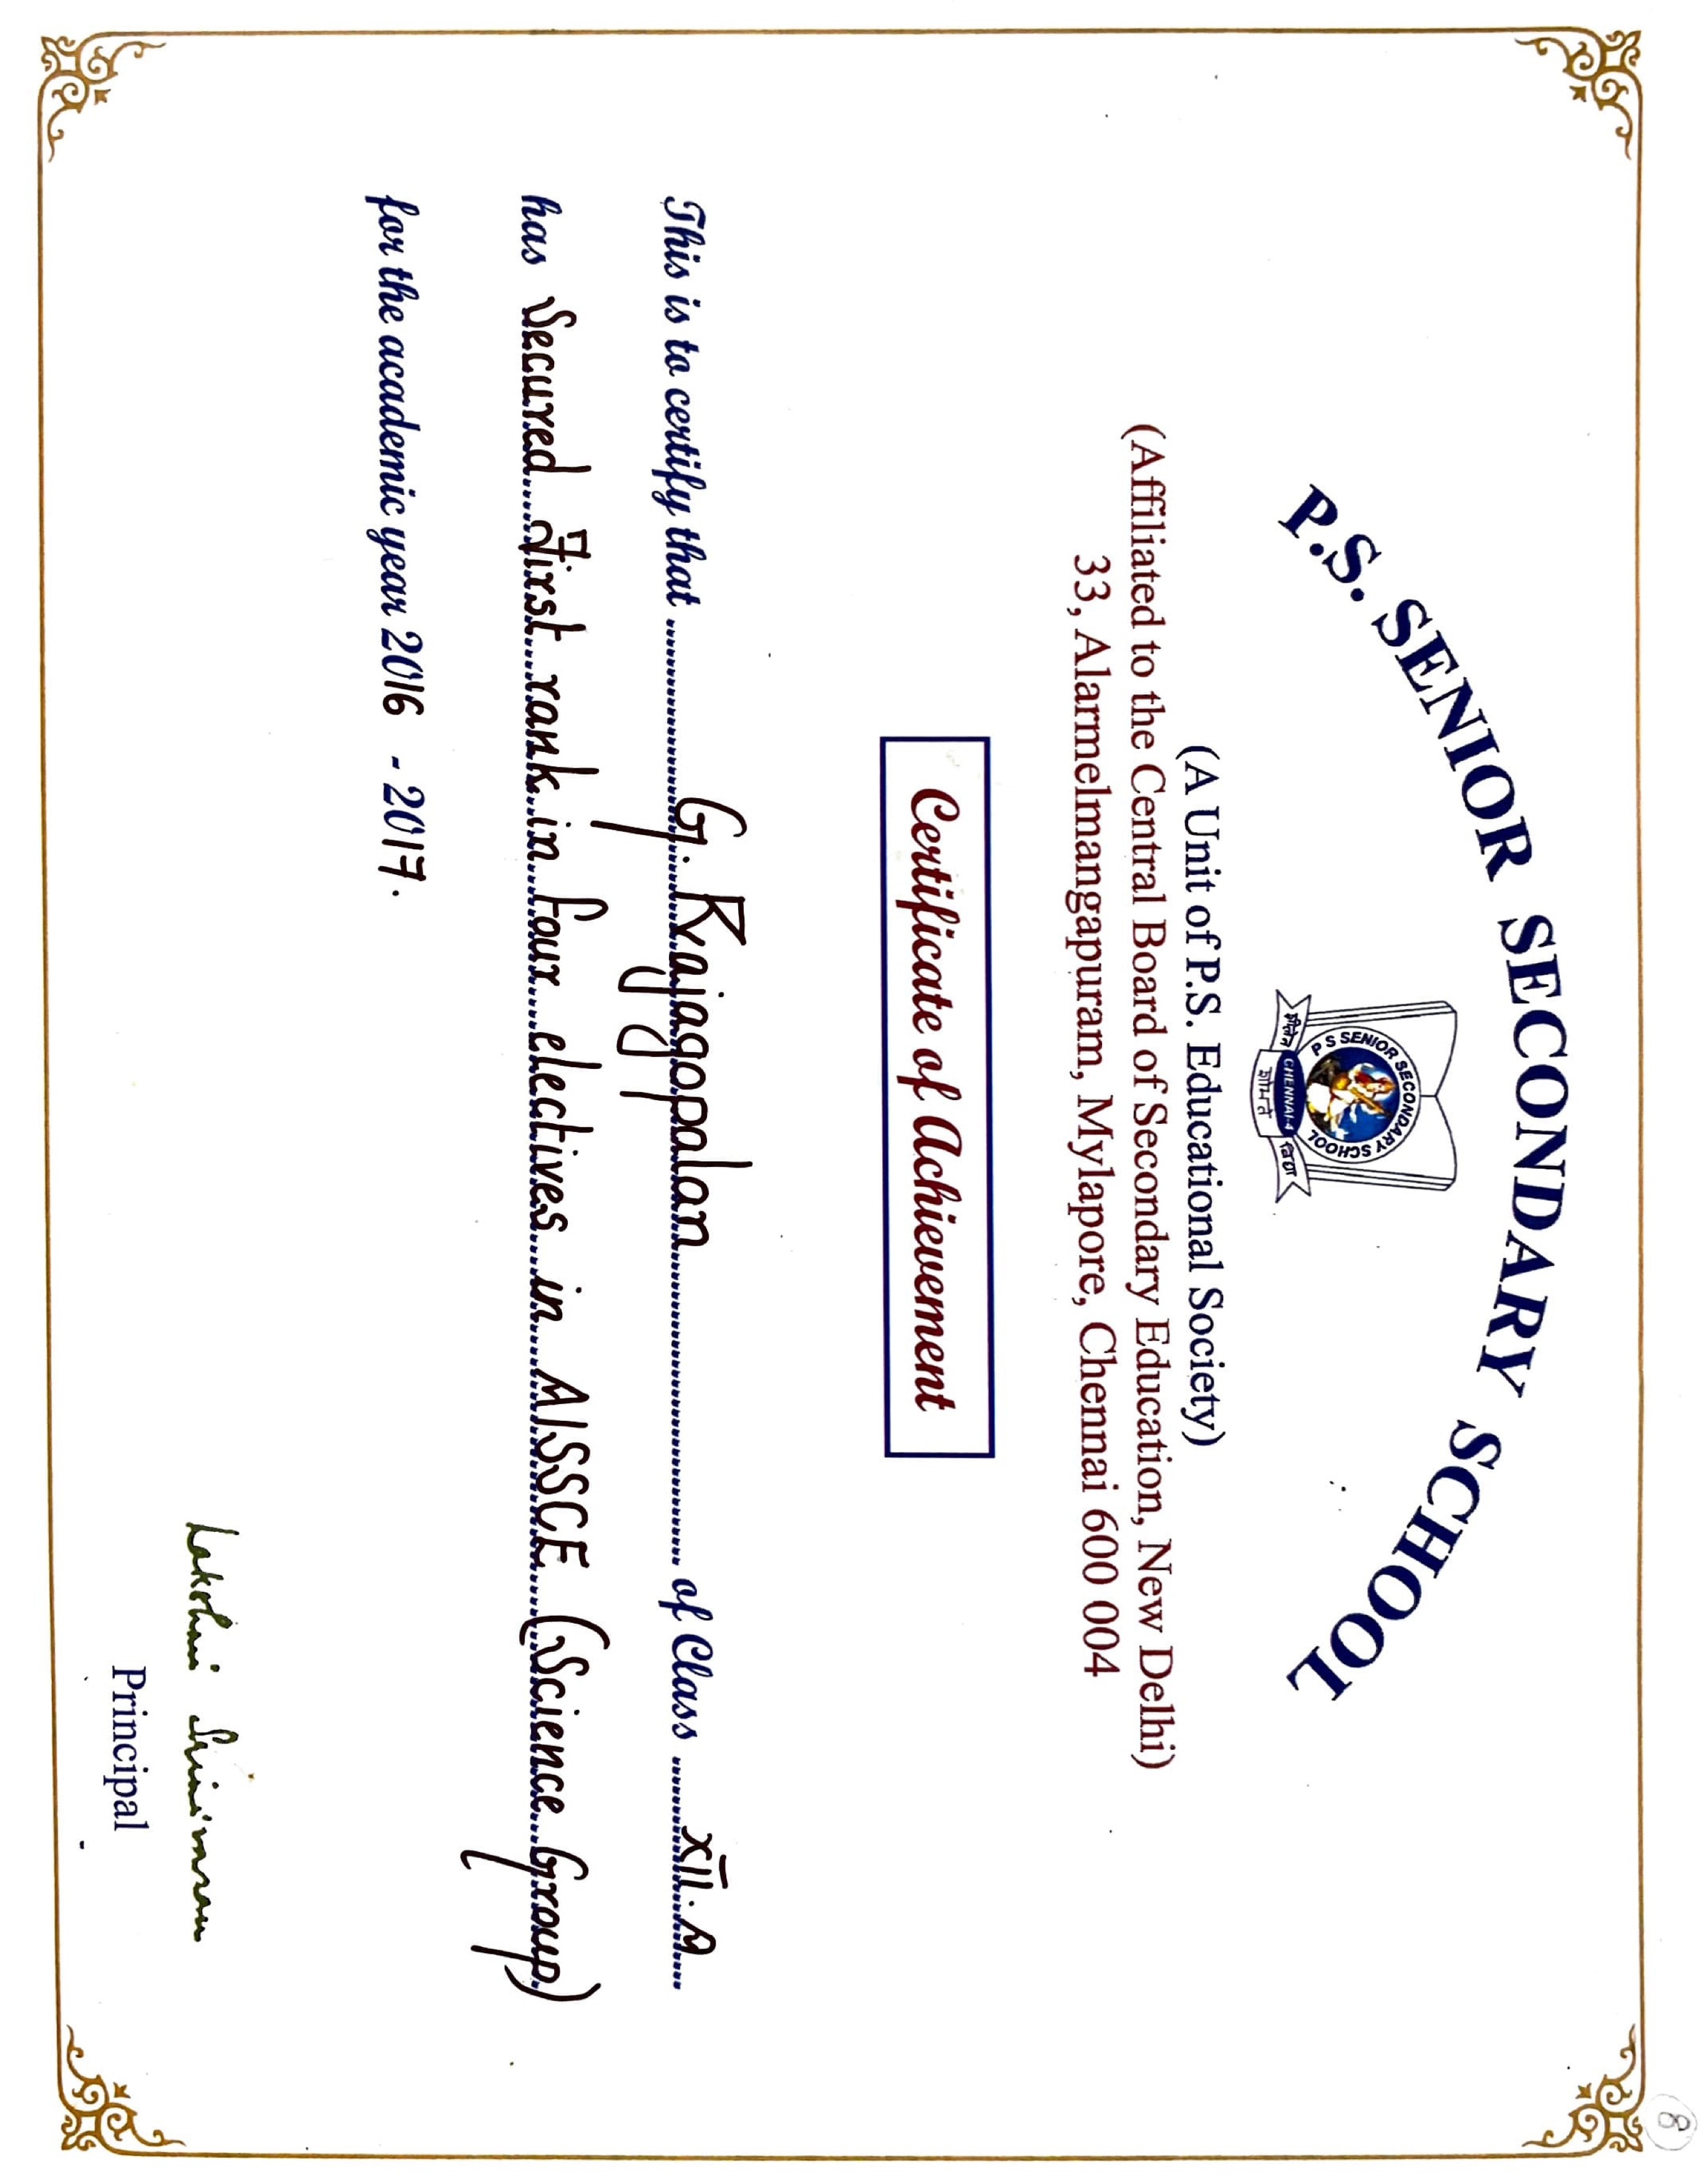 8
P.S. SENIOR SECONDARY SCHOOL
P S SENIOR SECONDARY SCHOOL
CHENNAI-4
शीलेन विद्या
शोभते
(A Unit of P.S. Educational Society)
(Affiliated to the Central Board of Secondary Education, New Delhi)
33, Alarmelmangapuram, Mylapore, Chennai 600 004
Certificate of Achievement
This is to certify that G. Rajagopalan of Class XII. A
has Secured First rank in Four electives in AISSCE (Science Group)
for the academic year 2016 - 2017.
Lakshmi Srinivasan
Principal